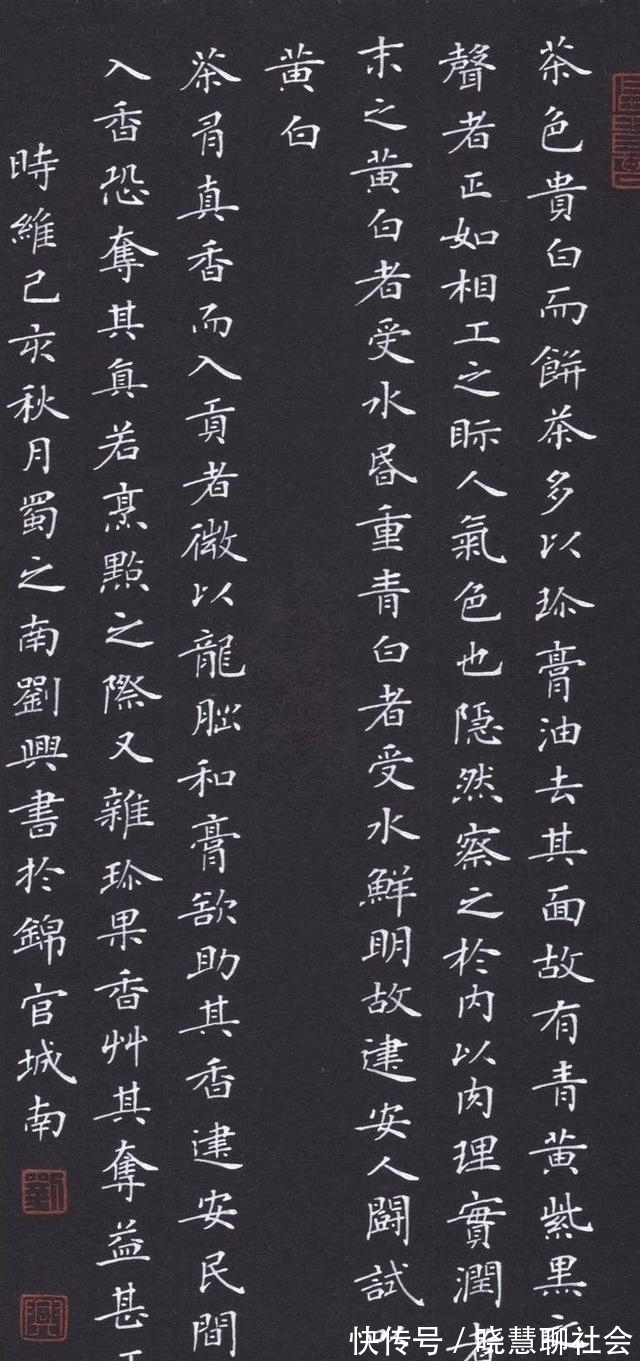 茶色貴白而餅茶多以珎膏油去其面故有青黃紫黑之
聲者正如相工之眎人氣色也隱然察之於内以肉理實潤者
末之黃白者受水昬重青白者受水鮮明故建安人鬭試
黃白
茶有真香而入貢者微以龍腦和膏欲助其香建安民間
入香恐奪其真若烹點之際又雜珎果香艸其奪益甚
時維己亥秋月蜀之南劉興書於錦官城南
劉
興
快传号/晓慧聊社会